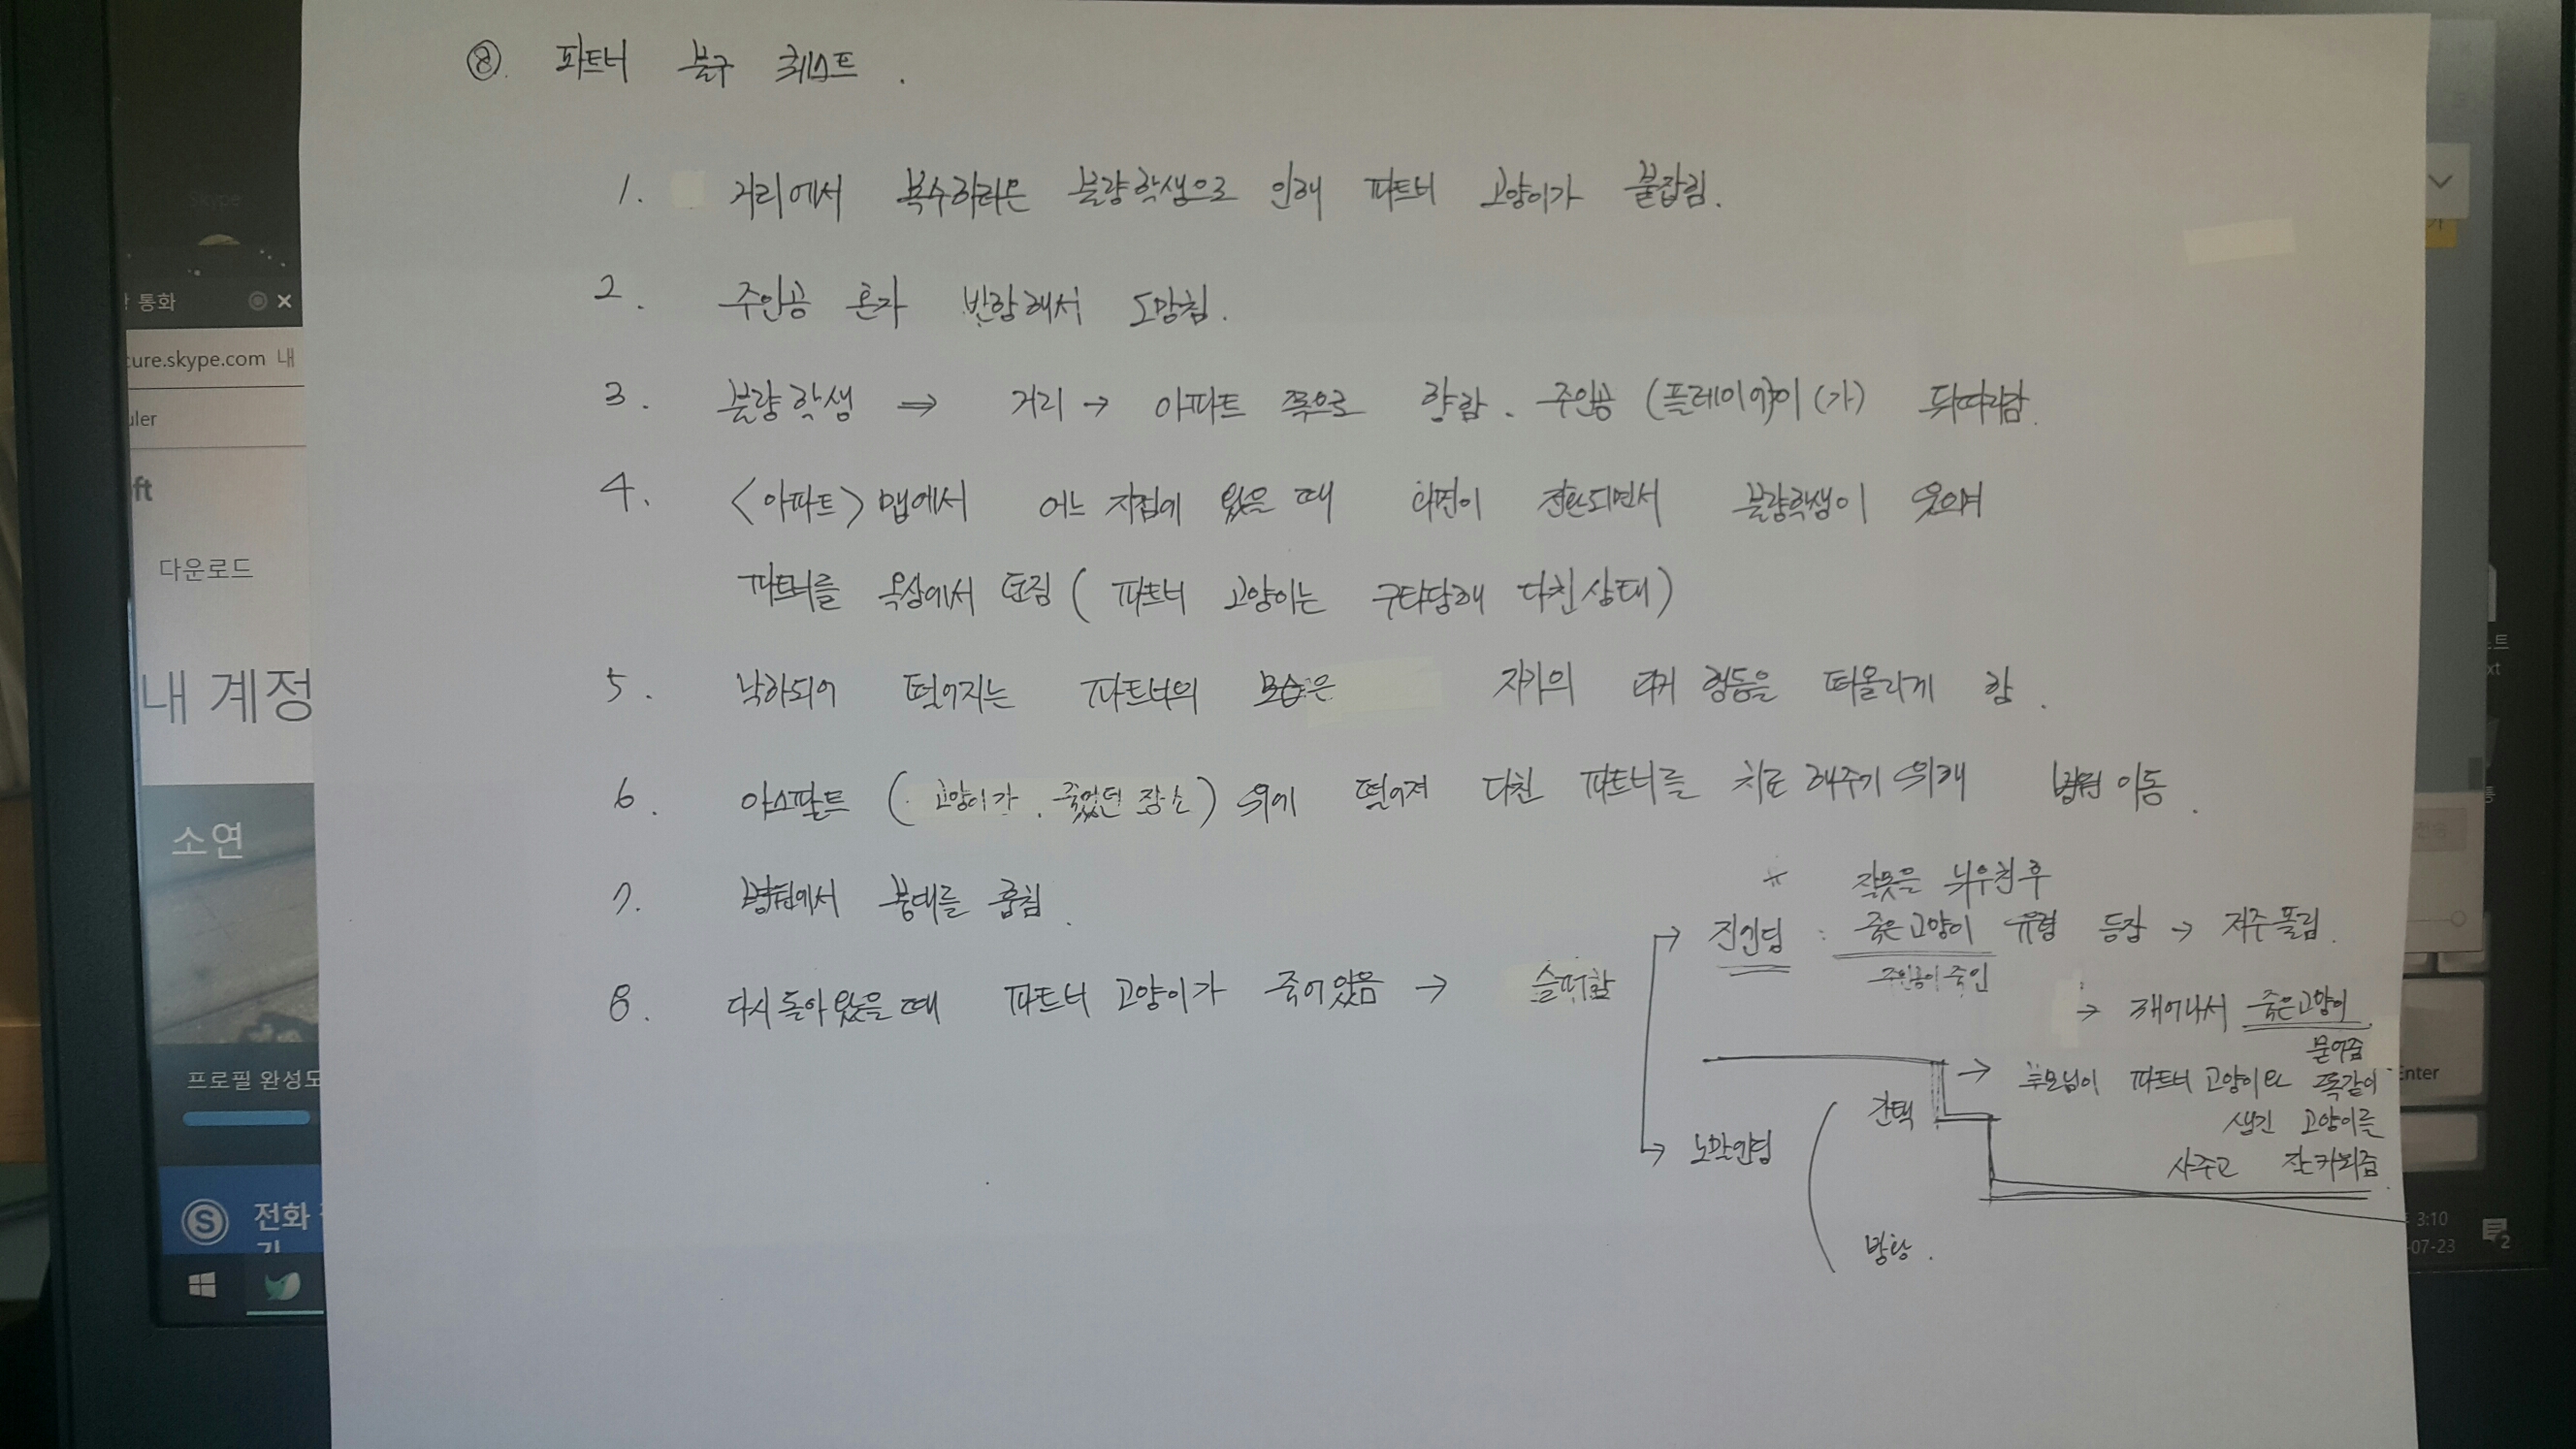 ⑧. 파트너 불구 퀘스트.
1. 거리에서 복수하려온 불량학생으로 인해 파트너 고양이가 붙잡힘.
2. 주인공 혼자 반항해서 도망침.
3. 불량학생 ⇒ 거리 → 아파트 쪽으로 향함. 주인공 (플레이어)이(가) 뒤따라감.
4. <아파트> 맵에서 어느 지점에 왔을 때 화면이 전환되면서 불량학생이 웃으며
파트너를 옥상에서 던짐 ( 파트너 고양이는 구타당해 다친상태)
5. 낙하되어 떨어지는 파트너의 모습은 자기의 과거 행동을 떠올리게 함.
6. 아스팔트 ( 고양이가 죽었던 장소) 위에 떨어져 다친 파트너를 치료 해주기 위해 병원 이동.
7. 병원에서 붕대를 훔침.
8. 다시 돌아왔을 때 파트너 고양이가 죽어있음 → 슬퍼함
* 잘못을 뉘우친 후
→ 진엔딩 : 죽은고양이 유령 등장 → 저주 풀림.
주인공이 죽인
→ 깨어나서 죽은고양이
묻어줌
→ 부모님이 파트너 고양이와 똑같이
생긴 고양이를
사주고 잔 키워줌.
→ 노말엔딩
간택
방황.
Skype
통화
ure.skype.com 내
uler
ft
다운로드
내 계정
소연
프로필 완성도
전화
Enter
3:10
-07-23
2